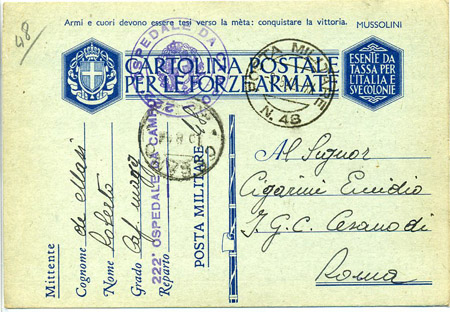 48
Armi e cuori devono essere tesi verso la mèta: conquistare la vittoria. MUSSOLINI
CARTOLINA POSTALE
PER LE FORZE ARMATE
ESENTE DA
TASSA PER
L'ITALIA E
SVE COLONIE
OSPEDALE DA CAMPO
POSTA MILITARE
N. 48
Mittente
Cognome de Masi
Nome Roberto
Grado Cap. magg.
Reparto
222° OSPEDALE DA CAMPO
POSTA MILITARE 48
Al Signor
Cigarini Emidio
I.G.C. Cesano di
Roma